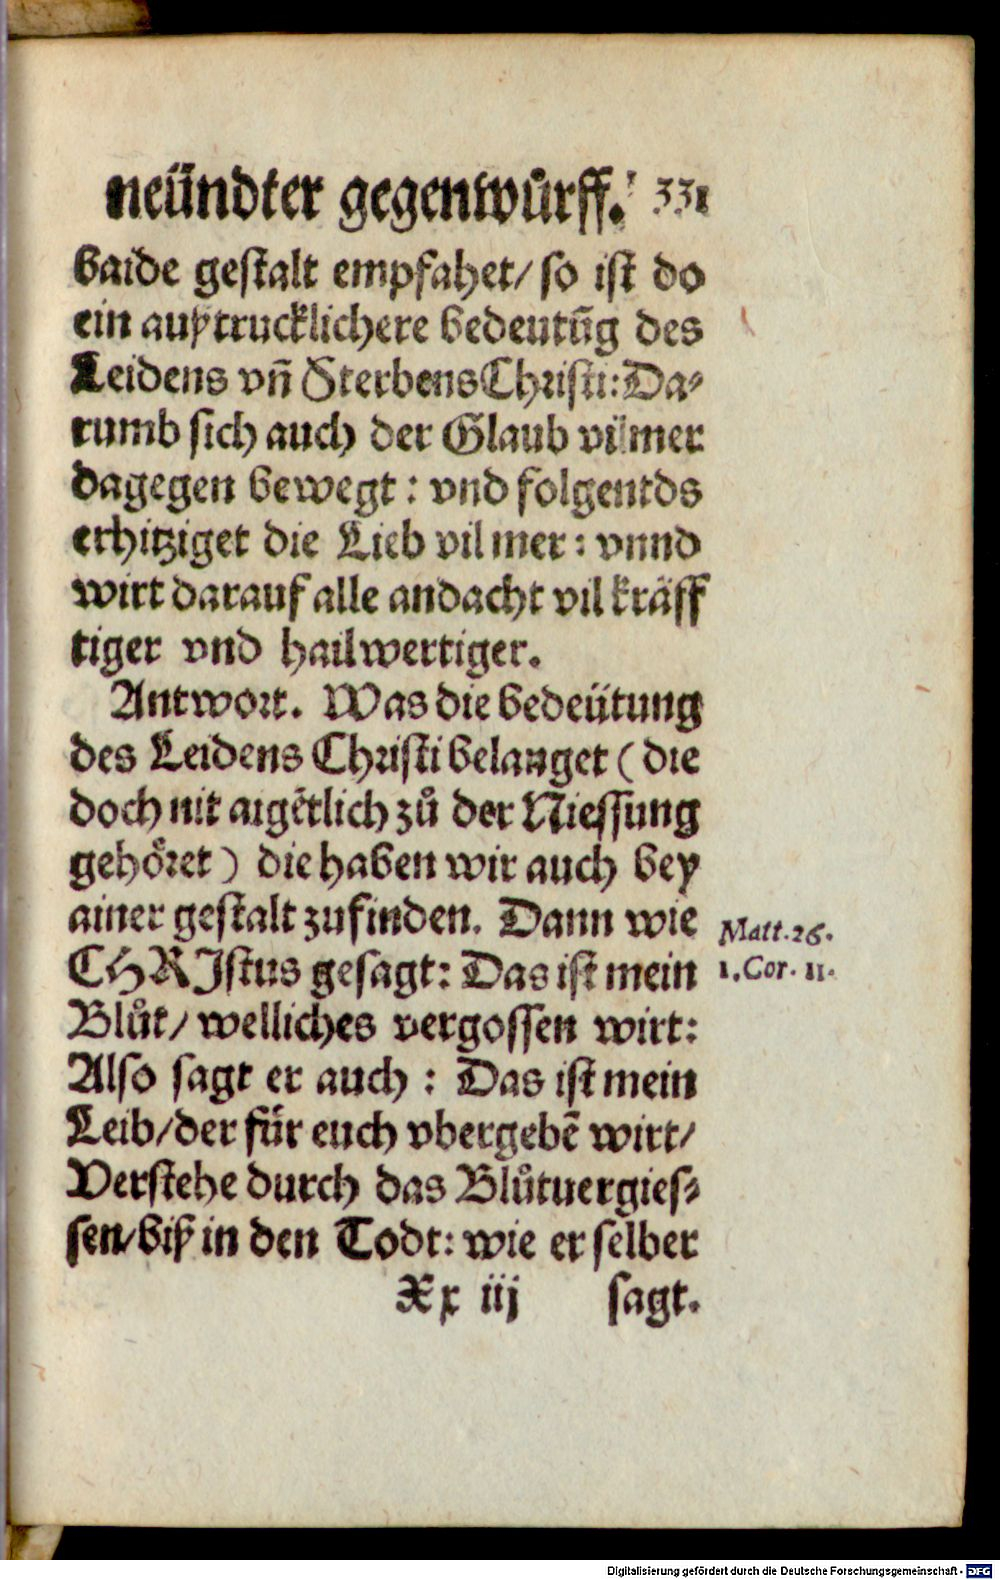 neündter gegenwürff. 331
baide gestalt empfahet/ so ist do
ein außtrucklichere bedeutūg des
Leidens vñ Sterbens Christi: Da⸗
rumb sich auch der Glaub vil mer
dagegen bewegt : vnd folgentds
erhitziget die Lieb vil mer : vnnd
wirt darauf alle andacht vil kräff
tiger vnd hailwertiger.
Antwort. Was die bedeütung
des Leidens Christi belanget ( die
doch nit aigētlich zů der Niessung
gehöret ) die haben wir auch bey
ainer gestalt zufinden. Dann wie
CHRJstus gesagt: Das ist mein
Blůt/ welliches vergossen wirt:
Also sagt er auch : Das ist mein
Leib/der für euch vbergebē wirt/
Verstehe durch das Blůtuergies⸗
sen/biß in den Todt: wie er selber
Xx iij sagt.
Matt. 26.
1. Cor. 11.
Digitalisierung gefördert durch die Deutsche Forschungsgemeinschaft - DFG